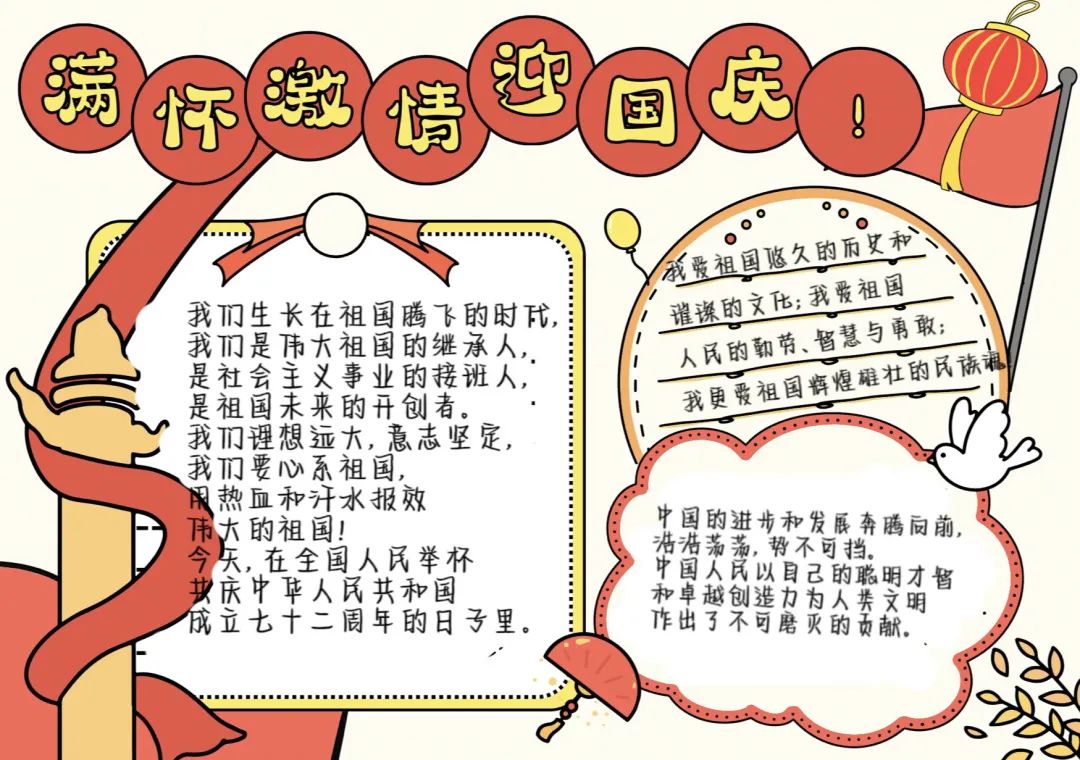 满怀激情迎国庆!
我们生长在祖国腾飞的时代,
我们是伟大祖国的继承人,
是社会主义事业的接班人,
是祖国未来的开创者。
我们理想远大,意志坚定,
我们要心系祖国,
用热血和汗水报效
伟大的祖国!
今天,在全国人民举杯
共庆中华人民共和国
成立七十二周年的日子里。
我爱祖国悠久的历史和
璀璨的文化;我爱祖国
人民的勤劳、智慧与勇敢;
我更爱祖国辉煌雄壮的民族魂
中国的进步和发展奔腾向前,
浩浩荡荡,势不可挡。
中国人民以自己的聪明才智
和卓越创造力为人类文明
作出了不可磨灭的贡献。